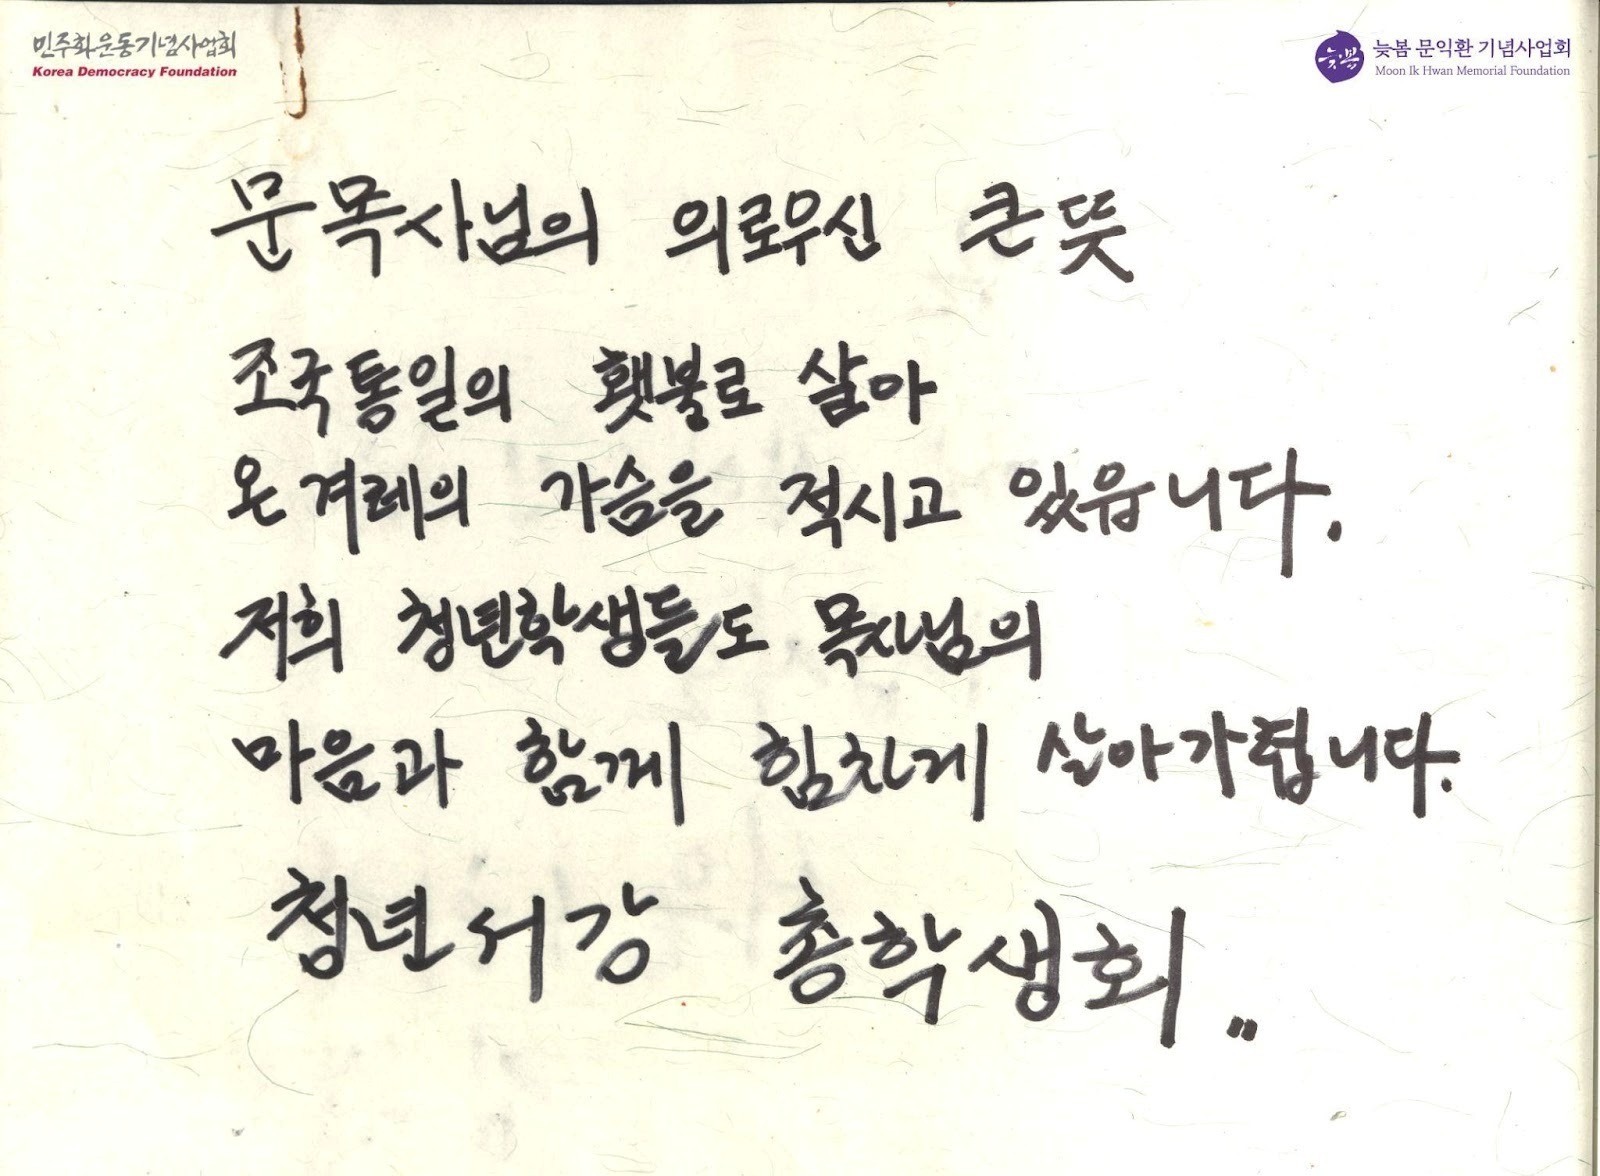 민주화운동기념사업회
Korea Democracy Foundation
늦봄
늦봄 문익환 기념사업회
Moon Ik Hwan Memorial Foundation
문목사님의 의로우신 큰뜻
조국통일의 횃불로 살아
온겨레의 가슴을 적시고 있읍니다.
저희 청년학생들도 목사님의
마음과 함께 힘차게 살아가렵니다.
청년서강 총학생회 〃